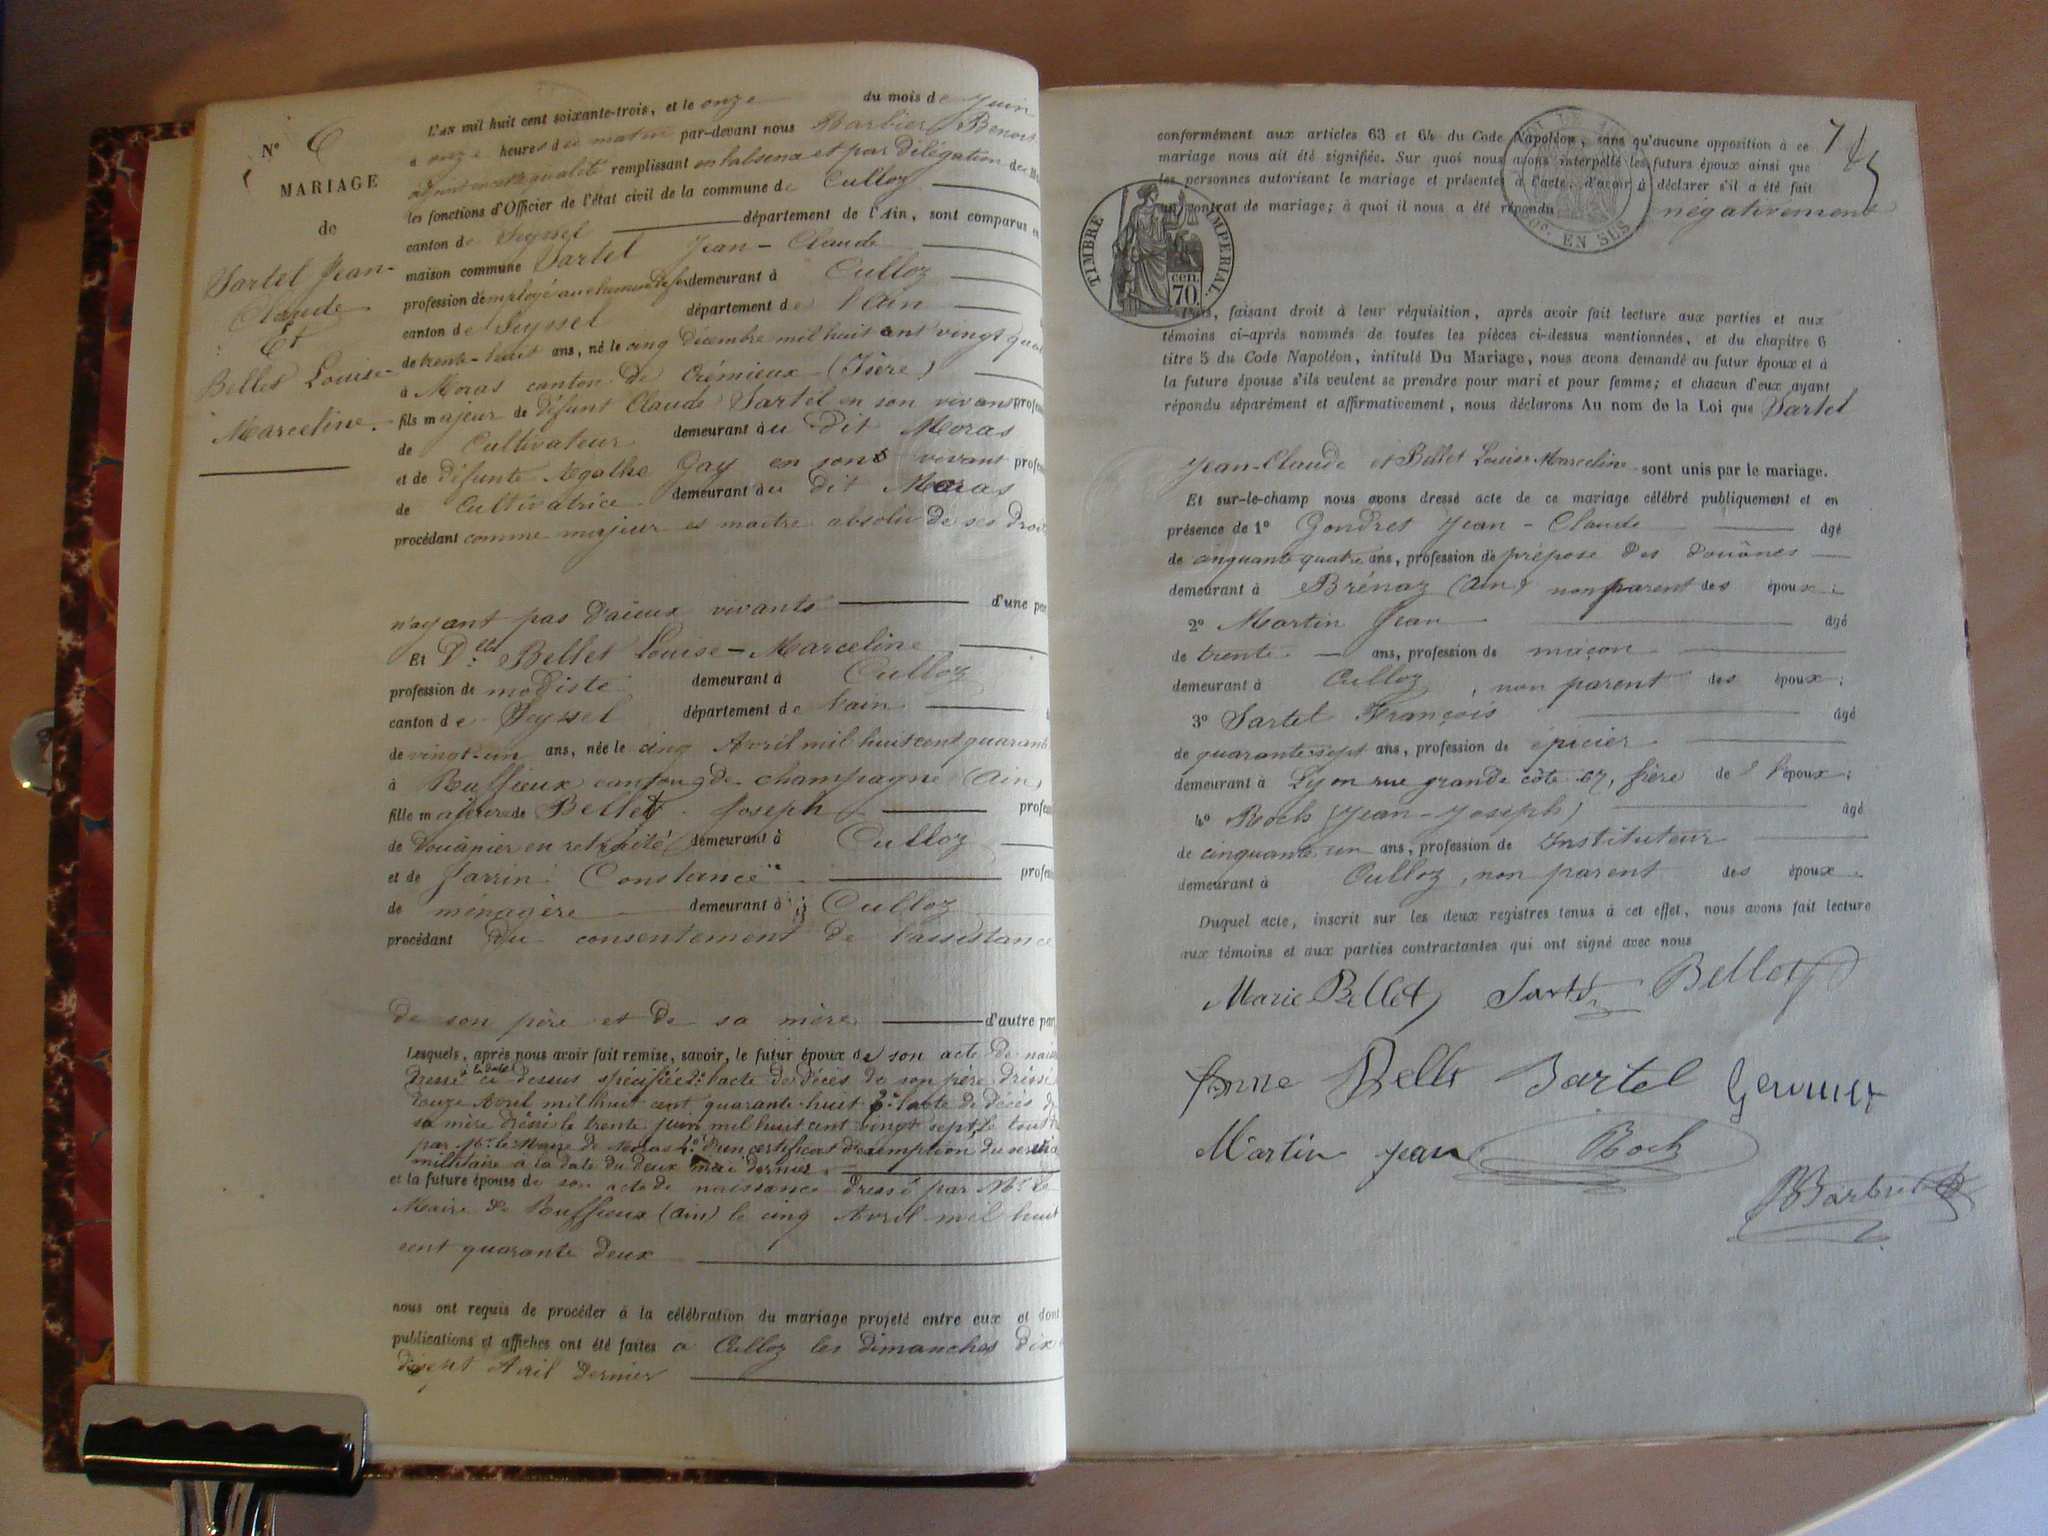 N° 6
MARIAGE
de
Sartel Jean-
Claude
Et
Bellet Louise-
Marceline.
L'AN mil huit cent soixante-trois, et le onze du mois de Juin
à onze heures du matin par-devant nous Barbier Benoit
adjoint en cette qualité remplissant en l'absence et par délégation de
les fonctions d'Officier de l'état civil de la commune de Culloz
canton de Seyssel département de l'Ain, sont comparus en
maison commune Sartel Jean-Claude
profession d'employé au chemin de fer demeurant à Culloz
canton de Seyssel département de l'Ain
de trente-huit ans, né le cinq décembre mil huit cent vingt quat
à Moras canton de Crémieux (Isère)
fils majeur de défunt Claude Sartel en son vivant profes
de Cultivateur demeurant au dit Moras
et de défunte Agathe Gay en son vivant profes
de Cultivatrice demeurant au dit Moras
procédant comme majeur et maitre absolu de ses droit
n'ayant pas d'aïeux vivants d'une par
Et Dlle Bellet Louise-Marceline
profession de modiste demeurant à Culloz
canton de Seyssel département de l'ain
de vingt-un ans, née le cinq Avril mil huit cent quarante
à Ruffieux canton de Champagne (Ain)
fille majeure de Bellet Joseph profes
de Douanier en retraité demeurant à Culloz
et de Jarrin Constance profes
de ménagère demeurant à Culloz
procédant du consentement de l'assistance
de son père et de sa mère d'autre par
Lesquels, après nous avoir fait remise, savoir, le futur époux de son acte de nais
dressé à la date ci dessus spécifiée 2° l'acte de décès de son père dressé
douze Avril mil huit cent quarante-huit 3° l'acte de décès de
sa mère dressé le trente juin mil huit cent vingt sept, le tout
par Mr le Maire de Moras 4° d'un certificat d'exemption du servi
militaire à la date du deux mai dernier.
et la future épouse de son acte de naissance dressé par Mr le
Maire de Ruffieux (ain) le cinq Avril mil huit
cent quarante deux
nous ont requis de procéder à la célébration du mariage projeté entre eux et dont
publications et affiches ont été faites a Culloz les dimanches dix
dixsept Avril dernier
7
conformément aux articles 63 et 64 du Code Napoléon, sans qu'aucune opposition à ce
mariage nous ait été signifiée. Sur quoi nous avons interpellé les futurs époux ainsi que
les personnes autorisant le mariage et présentes à l'acte, d'avoir à déclarer s'il a été fait
un contrat de mariage; à quoi il nous a été répondu négativement
TIMBRE IMPERIAL.
cen.
70.
EN SUS
Nous, faisant droit à leur réquisition, après avoir fait lecture aux parties et aux
témoins ci-après nommés de toutes les pièces ci-dessus mentionnées, et du chapitre 6
titre 5 du Code Napoléon, intitulé Du Mariage, nous avons demandé au futur époux et à
la future épouse s'ils veulent se prendre pour mari et pour femme; et chacun d'eux ayant
répondu séparément et affirmativement, nous déclarons Au nom de la Loi que Sartel
Jean-Claude et Bellet Louise Marceline sont unis par le mariage.
Et sur-le-champ nous avons dressé acte de ce mariage célébré publiquement et en
présence de 1° Gondret Jean-Claude âgé
de cinquante quatre ans, profession de préposé des douânes
demeurant à Brénaz (Ain) non parent des époux;
2° Martin Jean âgé
de trente ans, profession de maçon
demeurant à Culloz, non parent des époux;
3° Sartel François âgé
de quarante-sept ans, profession de épicier
demeurant à Lyon rue grande côte 67, frère de l'époux;
4° Roch (Jean-Joseph) âgé
de cinquante un ans, profession de Instituteur
demeurant à Culloz, non parent des époux.
Duquel acte, inscrit sur les deux registres tenus à cet effet, nous avons fait lecture
aux témoins et aux parties contractantes qui ont signé avec nous
Marie Bellet Sartel Bellet
Bellet Sartel
Martin jean Roch
Barbier